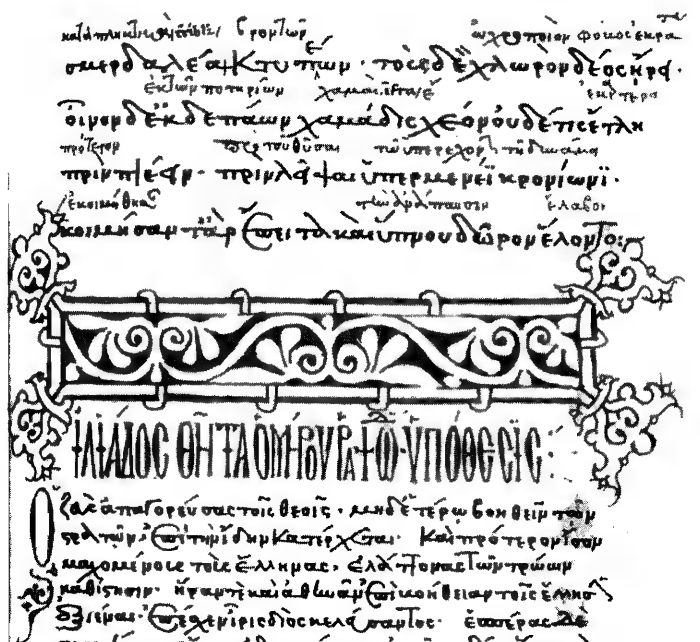 βροντῶν ὠχροποιὸν φόβος ἐκρά
σμερδαλέα κτυπέων· τοὺς δὲ χλωρὸν δέος ᾕρει·
ἐκ τῶν ποτηρίων χαμαὶ
οἶνον δ' ἐκ δεπάων χαμάδις χέον οὐδέ τις ἔτλη
πρότερον θῦσαι
πρὶν πιέειν· πρὶν λεῖψαι ὑπερμενέϊ κρονίωνϊ·
ἔλαβον
κοιμήσαντ' ἄρ ἔπειτα καὶ ὕπνου δῶρον ἕλοντο:
ἸΛΙΆΔΟΣ ΘΗ͂ΤΑ ὉΜΉΡΟΥ ῬΑΨΩ· ὙΠΌΘΕΣΙΣ:
Ζεὺς ἀπαγορεύσας τοῖς θεοῖς· μηδετέρω βοηθεῖν τῶν
στρατῶν· ἐπὶ τὴν ἴδην κατέρχεται· καὶ πρότερον ἴσον
μαχομένους τοὺς ἕλληνας, ἐλάττονας τῶν τρώων
καθίστησιν· ἥραν τὲ καὶ ἀθηνᾶν ἐπὶ βοήθειαν τοῖς ἕλλησιν
ἐξιέναι· ἐπέσχεν ἶρις διὸς κελεύσαντος· ἑσπέρας δὲ